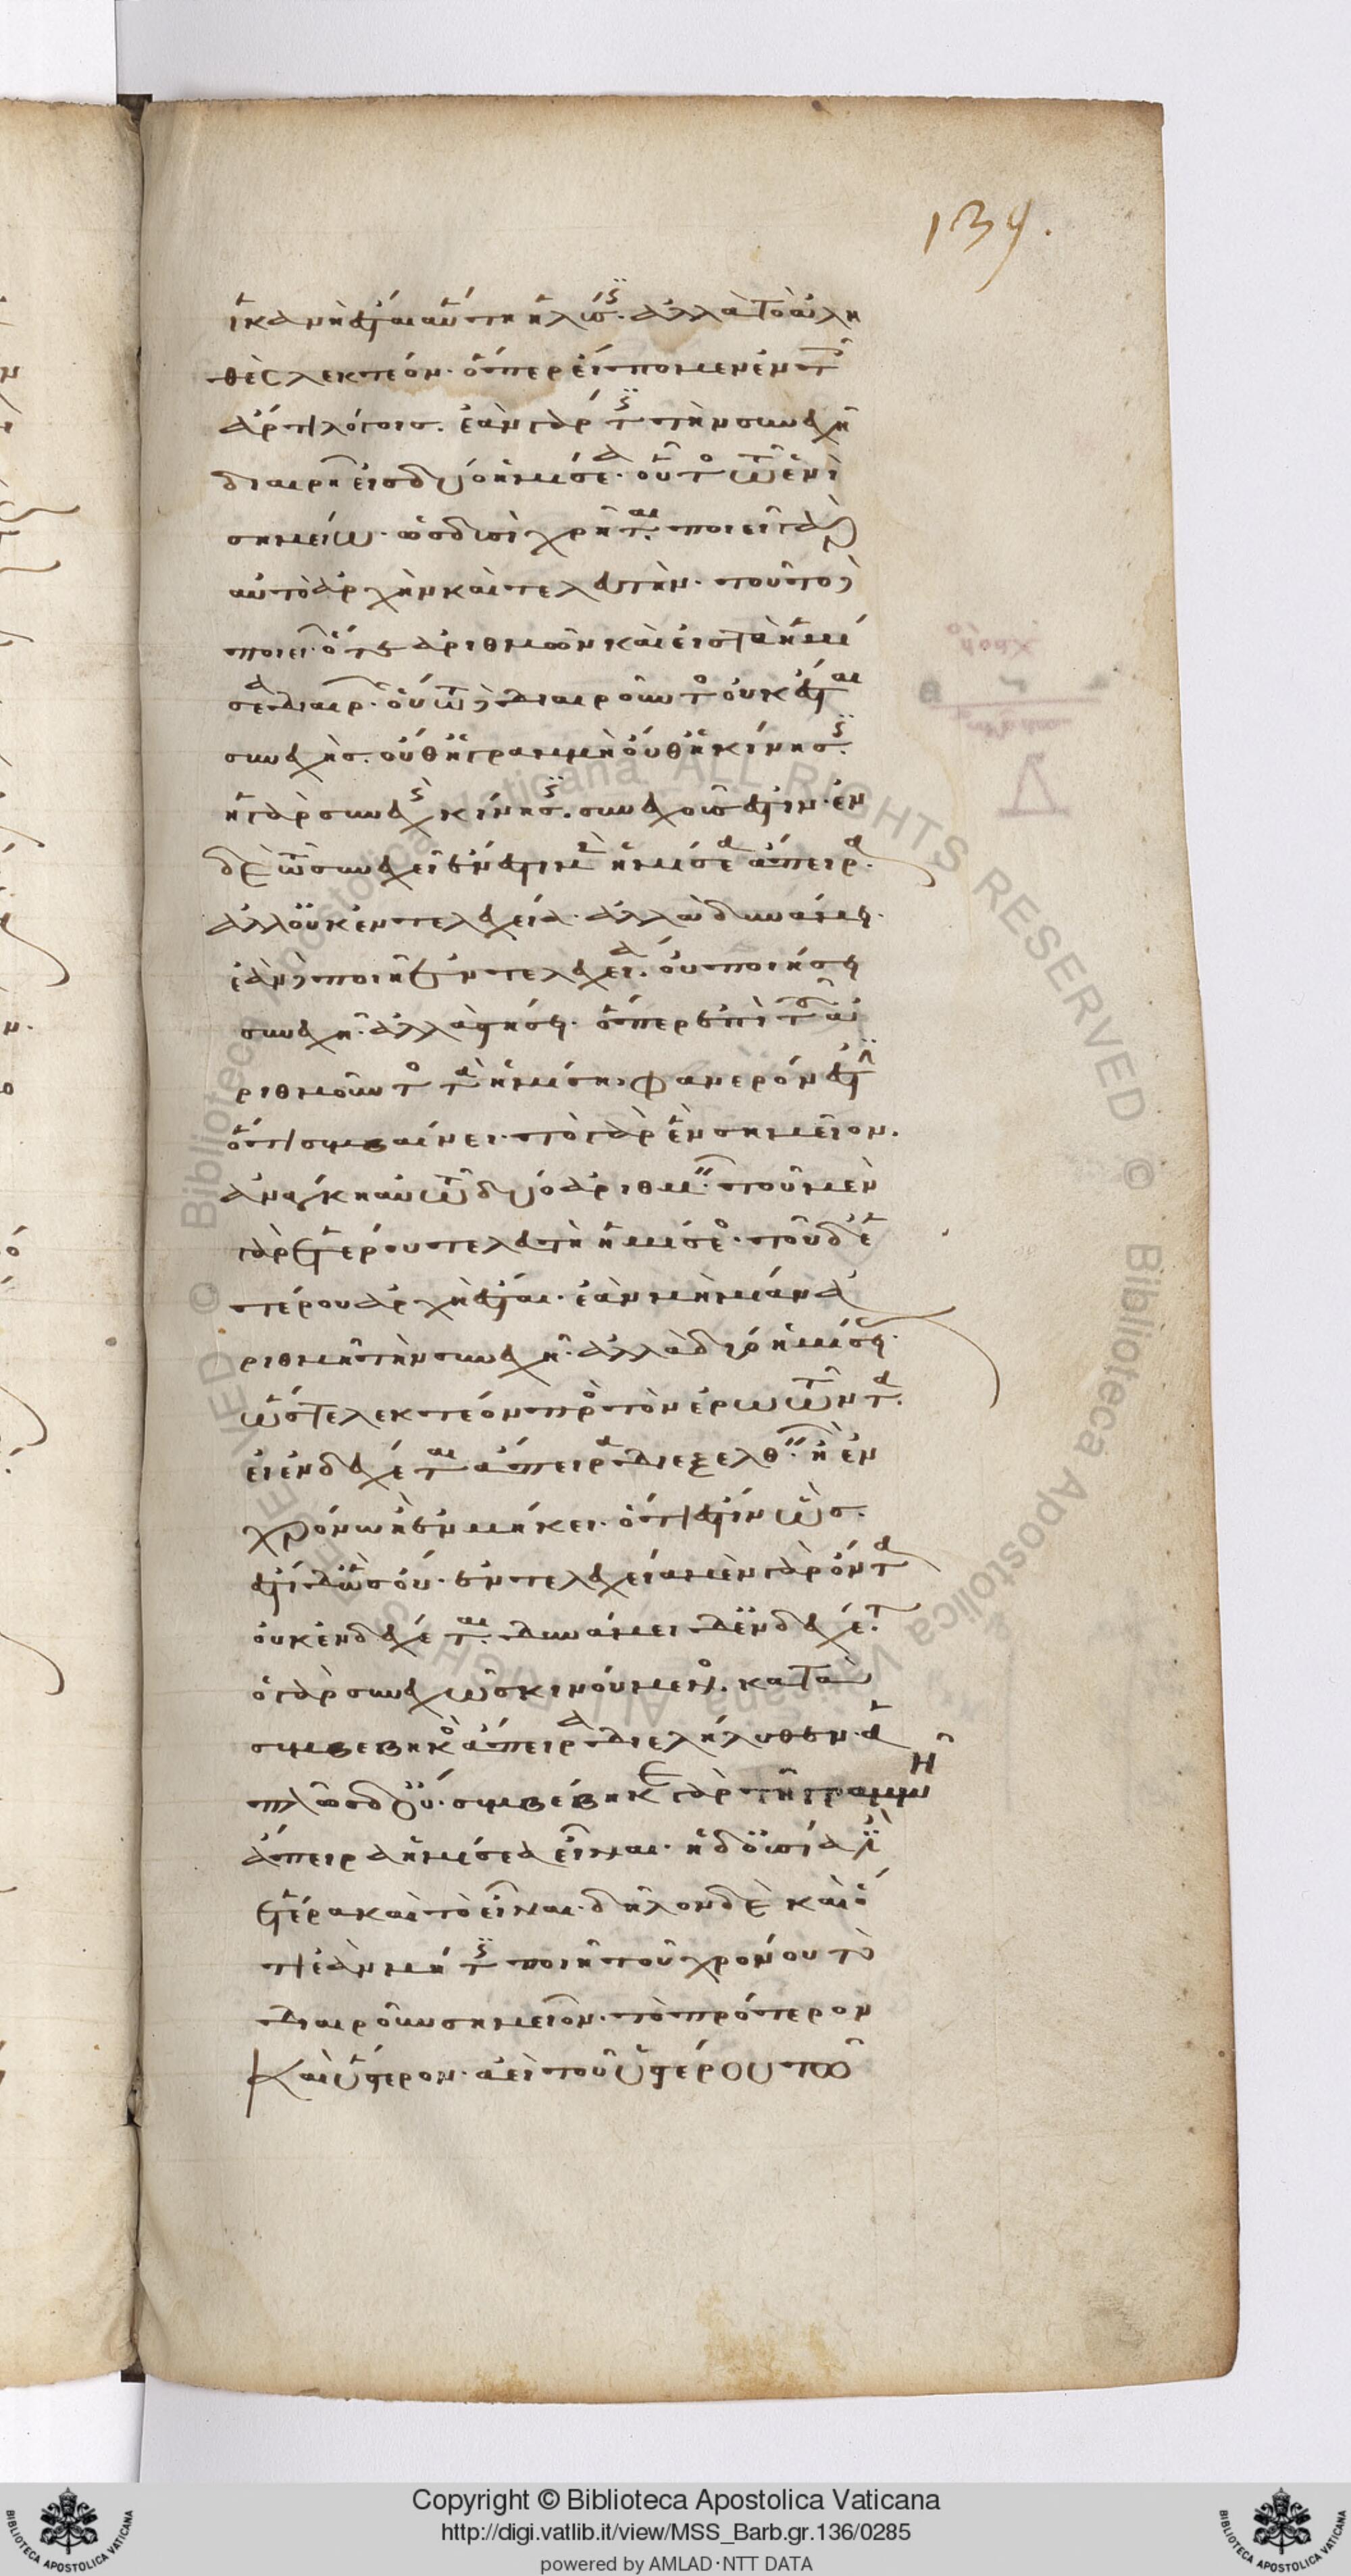 ἱκανὴ ἔσται αὕτη ἡ λύσις. ἀλλὰ τὸ ἀλη
θὲς λεκτέον. ὅπερ εἴπομεν ἐν τοῖς
ἄρτι λόγοις. ἐὰν γάρ τις τὴν συνεχῆ
διαιρῆ εἰς δύο ἡμίσεα. οὗτος τῶ ἑνὶ
σημείω. ὡς δυσὶ χρῆται. ποιεῖ γὰρ
αὐτὸ ἀρχὴν καὶ τελευτήν. τοῦτο δὲ
ποιεῖ ὅ τε ἀριθμῶν καὶ εἰς τὰ ἡμί
σεα διαιρῶν. οὕτω δὲ διαιροῦντος οὐκ ἔσται
συνεχὴς. οὔθ' ἡ γραμμὴ οὔθ' ἡ κίνησις.
ἡ γὰρ συνεχὴς κίνησις. συνεχοῦς ἐστιν. ἐν
δὲ τῶ συνεχεῖ ἔνεστι μὲν ἡμίσεα ἄπειρα.
ἀλλ' οὐκ ἐντελεχεία. ἀλλὰ δυνάμει.
ἐὰν δὲ ποιῆ ἐντελεχεία. οὐ ποιήσει
συνεχῆ. ἀλλὰ στήσει. ὅπερ ἐπὶ τοῦ ἀ
ριθμοῦντος τὰ ἡμίση. φανερόν ἐστιν
ὅτι συμβαίνει. τὸ γὰρ ἓν σημεῖον.
ἀνάγκη αὐτῶ δύο ἀριθμεῖν. τοῦ μὲν
γὰρ ἑτέρου τελευτὴ ἡμίσεος. τοῦ δ' ἑ
τέρου ἀρχὴ ἔσται. ἐὰν μὴ μίαν ἀ
ριθμῆ τὴν συνεχῆ. ἀλλὰ δύο ἡμισείας.
ὥστε λεκτέον πρὸς τὸν ἐρωτῶντα.
εἰ ἐνδέχεται ἄπειρα διεξελθεῖν ἢ ἐν
χρόνω ἢ ἐν μήκει. ὅτι ἔστιν ὡς.
ἔστι δ' ὡς οὔ. ἐντελεχεία μὲν γὰρ ὄντα
οὐκ ἐνδέχεται. δυνάμει δὲ ἐνδέχεται.
ὁ γὰρ συνεχῶς κινούμενος. κατὰ
συμβεβηκὸς ἄπειρα διελήλυθεν. ἁ
πλῶς δ' οὔ. συμβέβηκε γὰρ τῆ γραμμῆ
ἄπειρα ἡμίσεα εἶναι. ἡ δ' οὐσία ἐστὶν
ἑτέρα καὶ τὸ εἶναι. δῆλον δὲ καὶ ὅ
τι ἐὰν μή τις ποιῆ τοῦ χρόνου τὸ
διαιροῦν σημεῖον. τὸ πρότερον
καὶ ὕστερον. ἀεὶ τοῦ ὑστέρου τοῦ